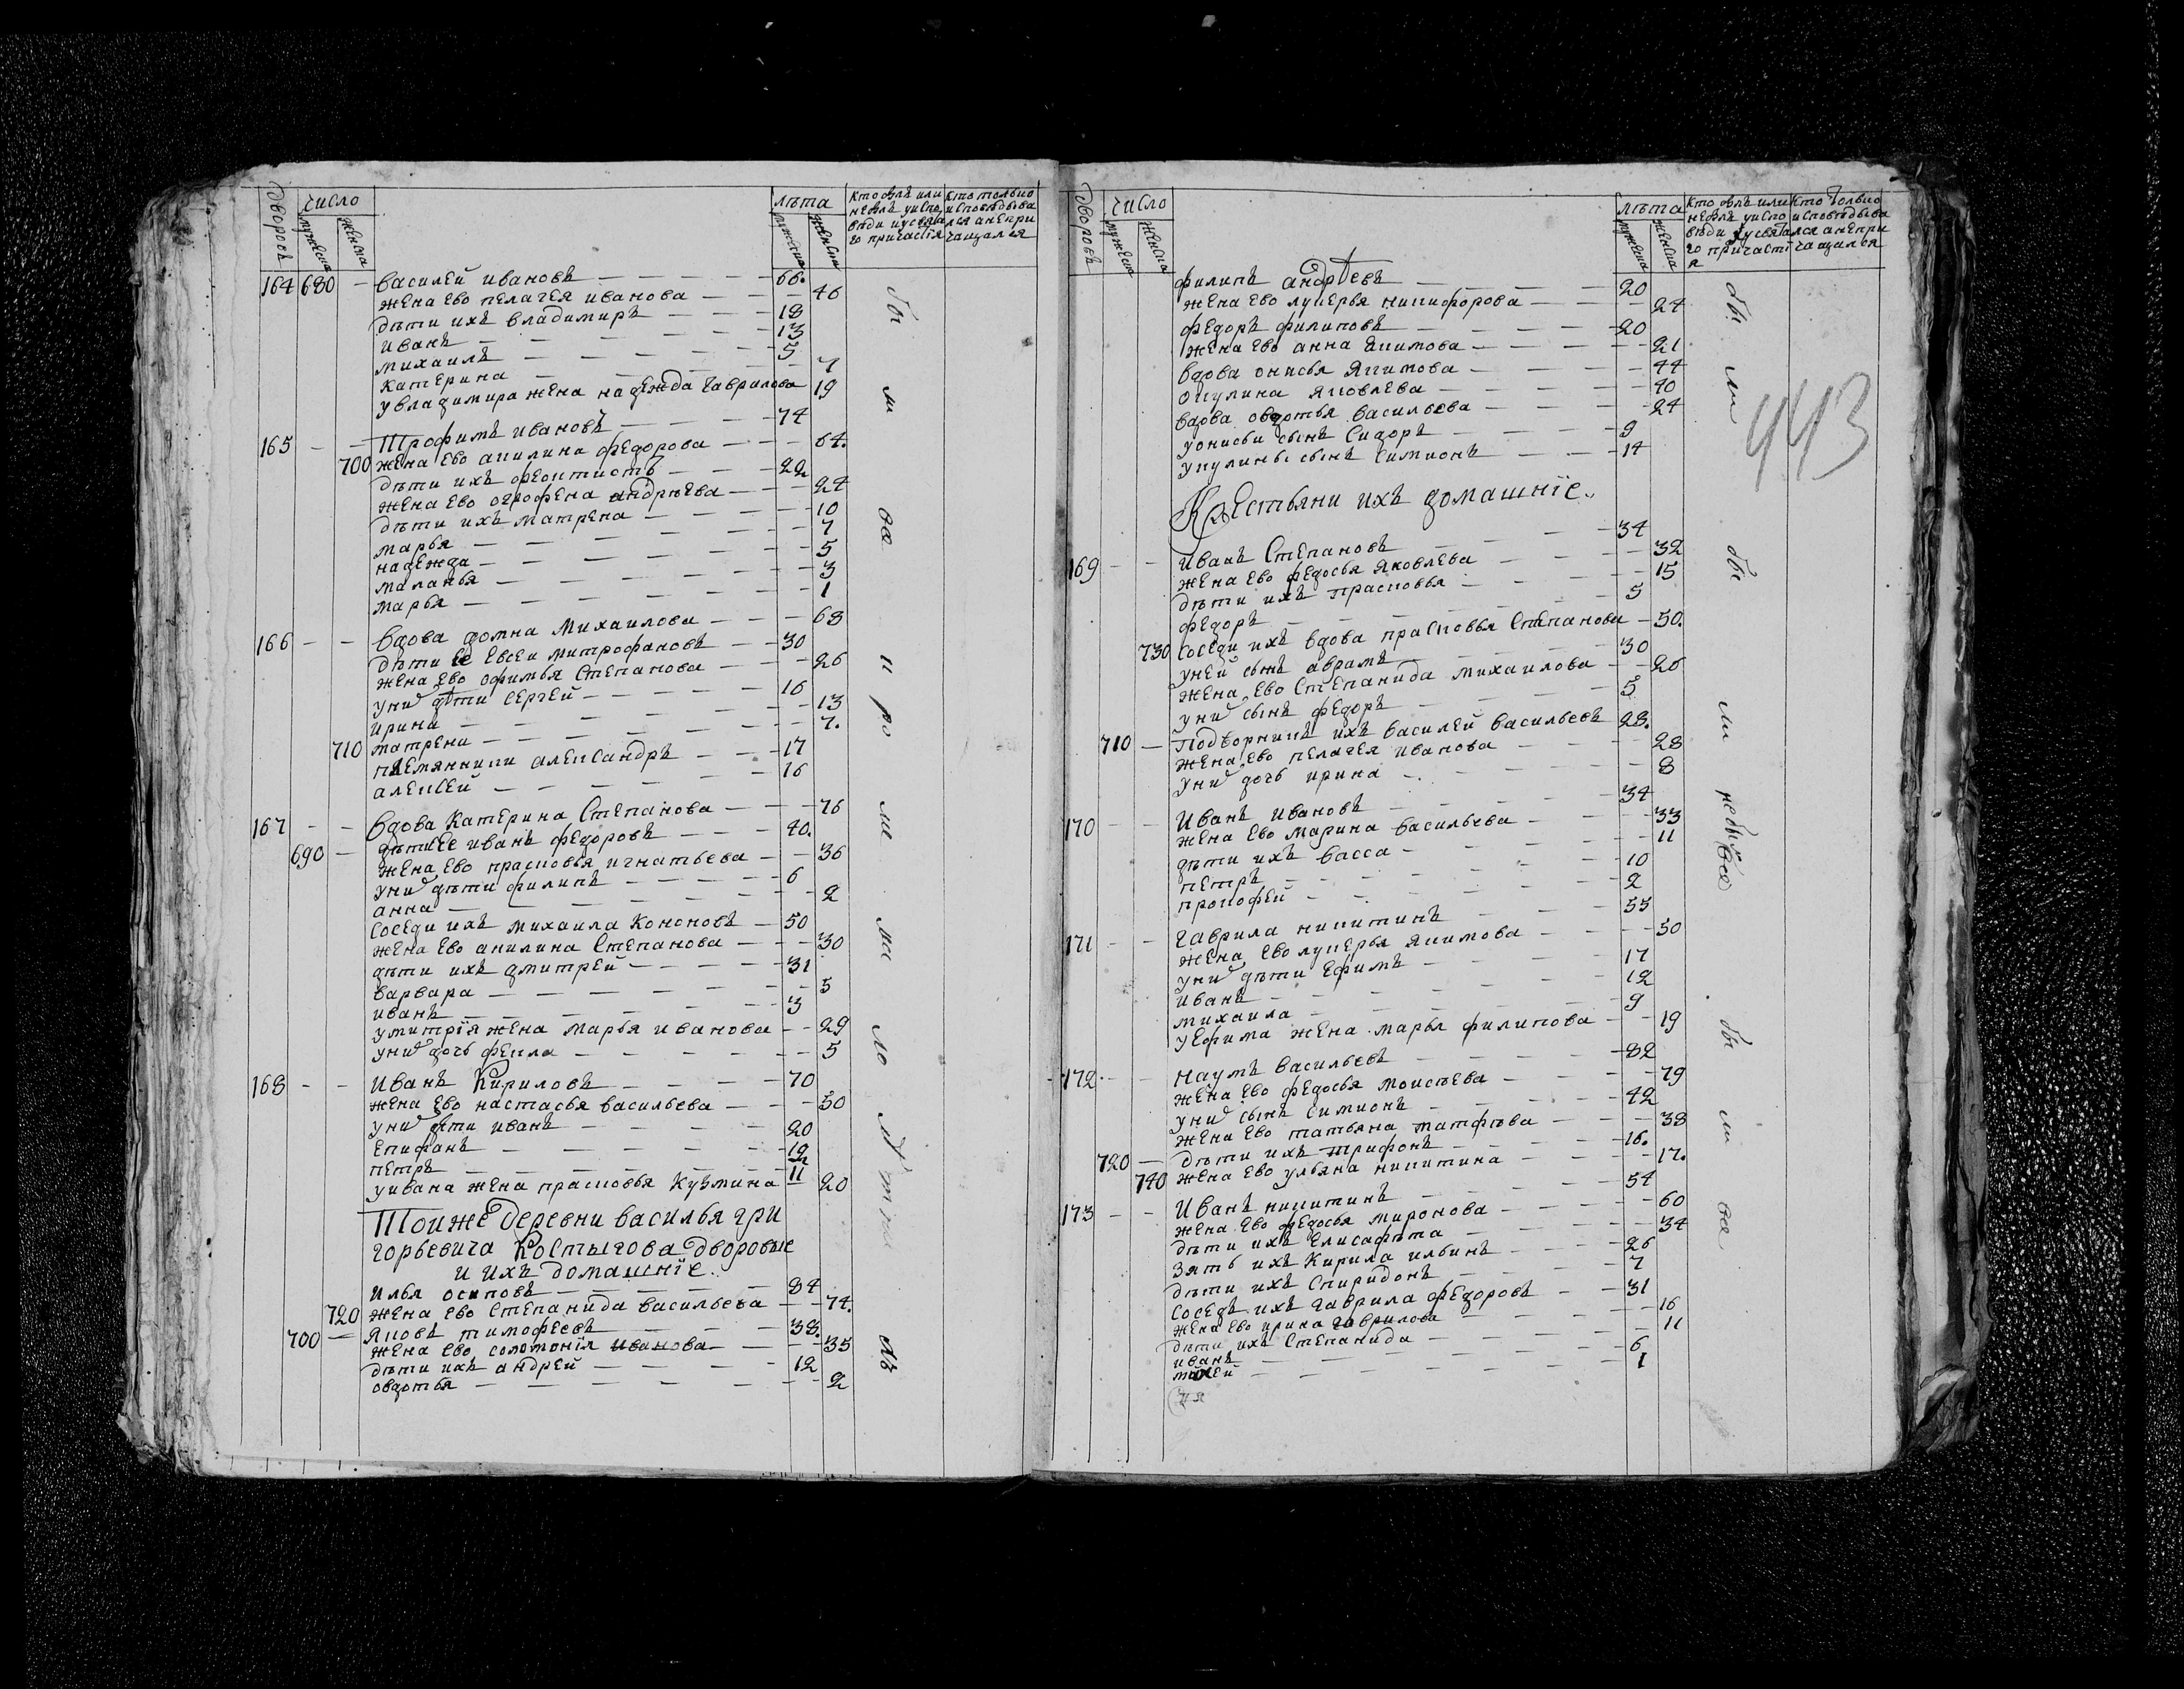 дворовъ число лѣта кто былъ или кто только
мужеска женска мужеска женска не былъ у испо исповѣдыва
вѣди и у свята лся а непри
го причастія чащался
164 680 — василей ивановъ — 66.
жена ево пелагея иванова — 46
дѣти ихъ владимиръ — 18
иванъ — 13
михаилъ — 5
катерина — 7
у владимира жена надежда гаврилова 19
165 — — Трофимъ ивановъ — 74
700 жена ево акилина федорова — 64.
дѣти ихъ феоктистъ — 22
жена ево огрофена андрѣева — 24
дѣти ихъ матрена — 10
марья — 7
надежда — 5
маланья — 3
марья — 1
166 — — вдова домна Михаилова — 68
дѣти ее евсеи митрофановъ — 30
жена ево офимья степанова — 26
у них дѣти сергей — 16
ирина — 13
710 матрена — 7.
племянники александръ — 17
алексей — 16
167 — — вдова катерина Степанова — 76
690 — дѣти ее иванъ федоровъ — 40.
жена ево прасковья игнатьева — 36
у них дѣти филипъ — 6
анна — 2
соседи ихъ михаила Кононовъ — 50
жена ево акилина Степанова — 30
дѣти ихъ дмитрей — 31
варвара — 5
иванъ — 3
у митрія жена марья иванова — 29
у них дочь фекла — 5
168 — — Иванъ Кириловъ — 70
жена ево настасья васильева — 50
у них дѣти иванъ — 20
епифанъ — 12
петръ — 11
у ивана жена прасковья Кузмина 20
Тоиже деревни василья гри
горьевича Костыгова дворовые
и ихъ домашніе.
Илья осиповъ — 84
720 жена ево Степанида васильева — 74.
700 — Яковъ тимофеевъ — 38.
жена ево соломонія иванова — 35
дѣти ихъ андрей — 12
овдотья — 2
дворовъ число лѣта кто былъ или кто только
мужеска женска мужеска женска не былъ у испо исповѣдыва
вѣди и у свята лся а непри
го причасті чащался
я
филипъ андрѣевъ — 20
жена ево лукерья никифорова — 24
федоръ филиповъ — 20
жена ево анна акимова — 21
вдова онисья Якимова — 44
окулина яковлева — 40
вдова овдотья васильева — 24
у онисьи сынъ Сидоръ — 9
у кулины сынъ симионъ — 14
443
Крестьяни ихъ домашніе.
169 — — иванъ Степановъ — 34
жена ево федосья яковлева — 32
дѣти ихъ прасковья — 15
федоръ — 5
730 соседи ихъ вдова прасковья Степанова — 50.
у ней сынъ аврамъ — 30
жена ево Степанида михаилова — 26
у них сынъ федоръ — 5
710 — Подворникъ ихъ василей васильевъ 28.
жена ево пелагея иванова — 28
у них дочь ирина — 8
170 — — Иванъ ивановъ — 34
жена ево марина васильева — 33
дѣти ихъ васса — 11
петръ — 10
прокофей — 2
171 — — гаврила никитинъ — 55
жена ево лукерья якимова — 50
у них дѣти ефимъ — 17
иванъ — 12
михаила — 9
у ефима жена марья филипова — 19
172 — — наумъ васильевъ — 82
жена ево федосья моисѣева — 79
у них сынъ симионъ — 42
жена ево татьяна матфѣва — 38
720 — дѣти ихъ трифонъ — 16.
740 жена ево ульяна никитина — 17.
173 — — Иванъ никитинъ — 54
жена ево федосья миронова — 60
дѣти ихъ елисафѣта — 34
зять ихъ Кирила ильинъ — 26
дѣти ихъ Спиридонъ — 7
соседъ ихъ гаврила федоровъ — 31
жена ево ирина гаврилова — 16
дѣти ихъ степанида — 11
иванъ — 6
1